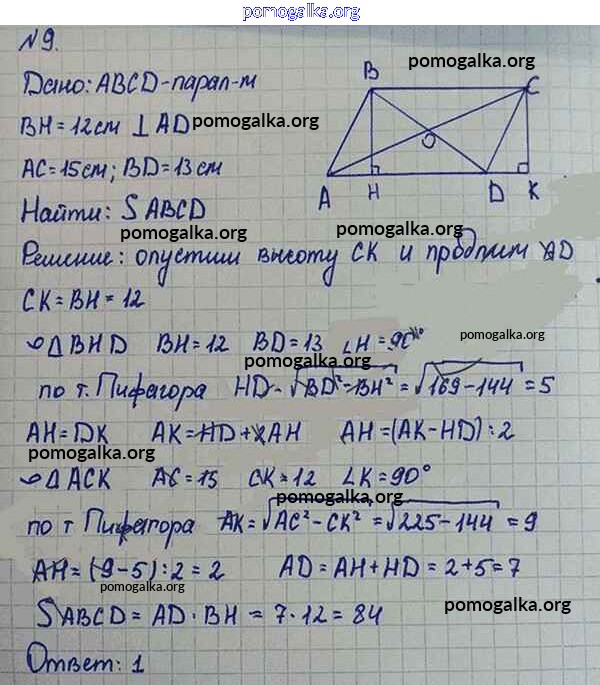 pomogalka.org
№9.
Дано: ABCD-парал-м
pomogalka.org
BH=12см ⊥ AD
pomogalka.org
AC=15см; BD=13см
Найти: S ABCD
pomogalka.org
B
C
O
A
H
D
K
pomogalka.org
Решение: опустим высоту CK и продлим AD
CK=BH=12
pomogalka.org
△BHD BH=12 BD=13 ∠H=90°
pomogalka.org
по т. Пифагора HD=√BD²-BH² = √169-144 = 5
AH=DK AK=HD+2AH AH=(AK-HD):2
pomogalka.org
△ACK AC=15 CK=12 ∠K=90°
pomogalka.org
по т Пифагора AK=√AC²-CK² = √225-144 = 9
AH=(9-5):2=2 AD=AH+HD=2+5=7
pomogalka.org
S ABCD = AD·BH = 7·12 = 84
pomogalka.org
Ответ: 1